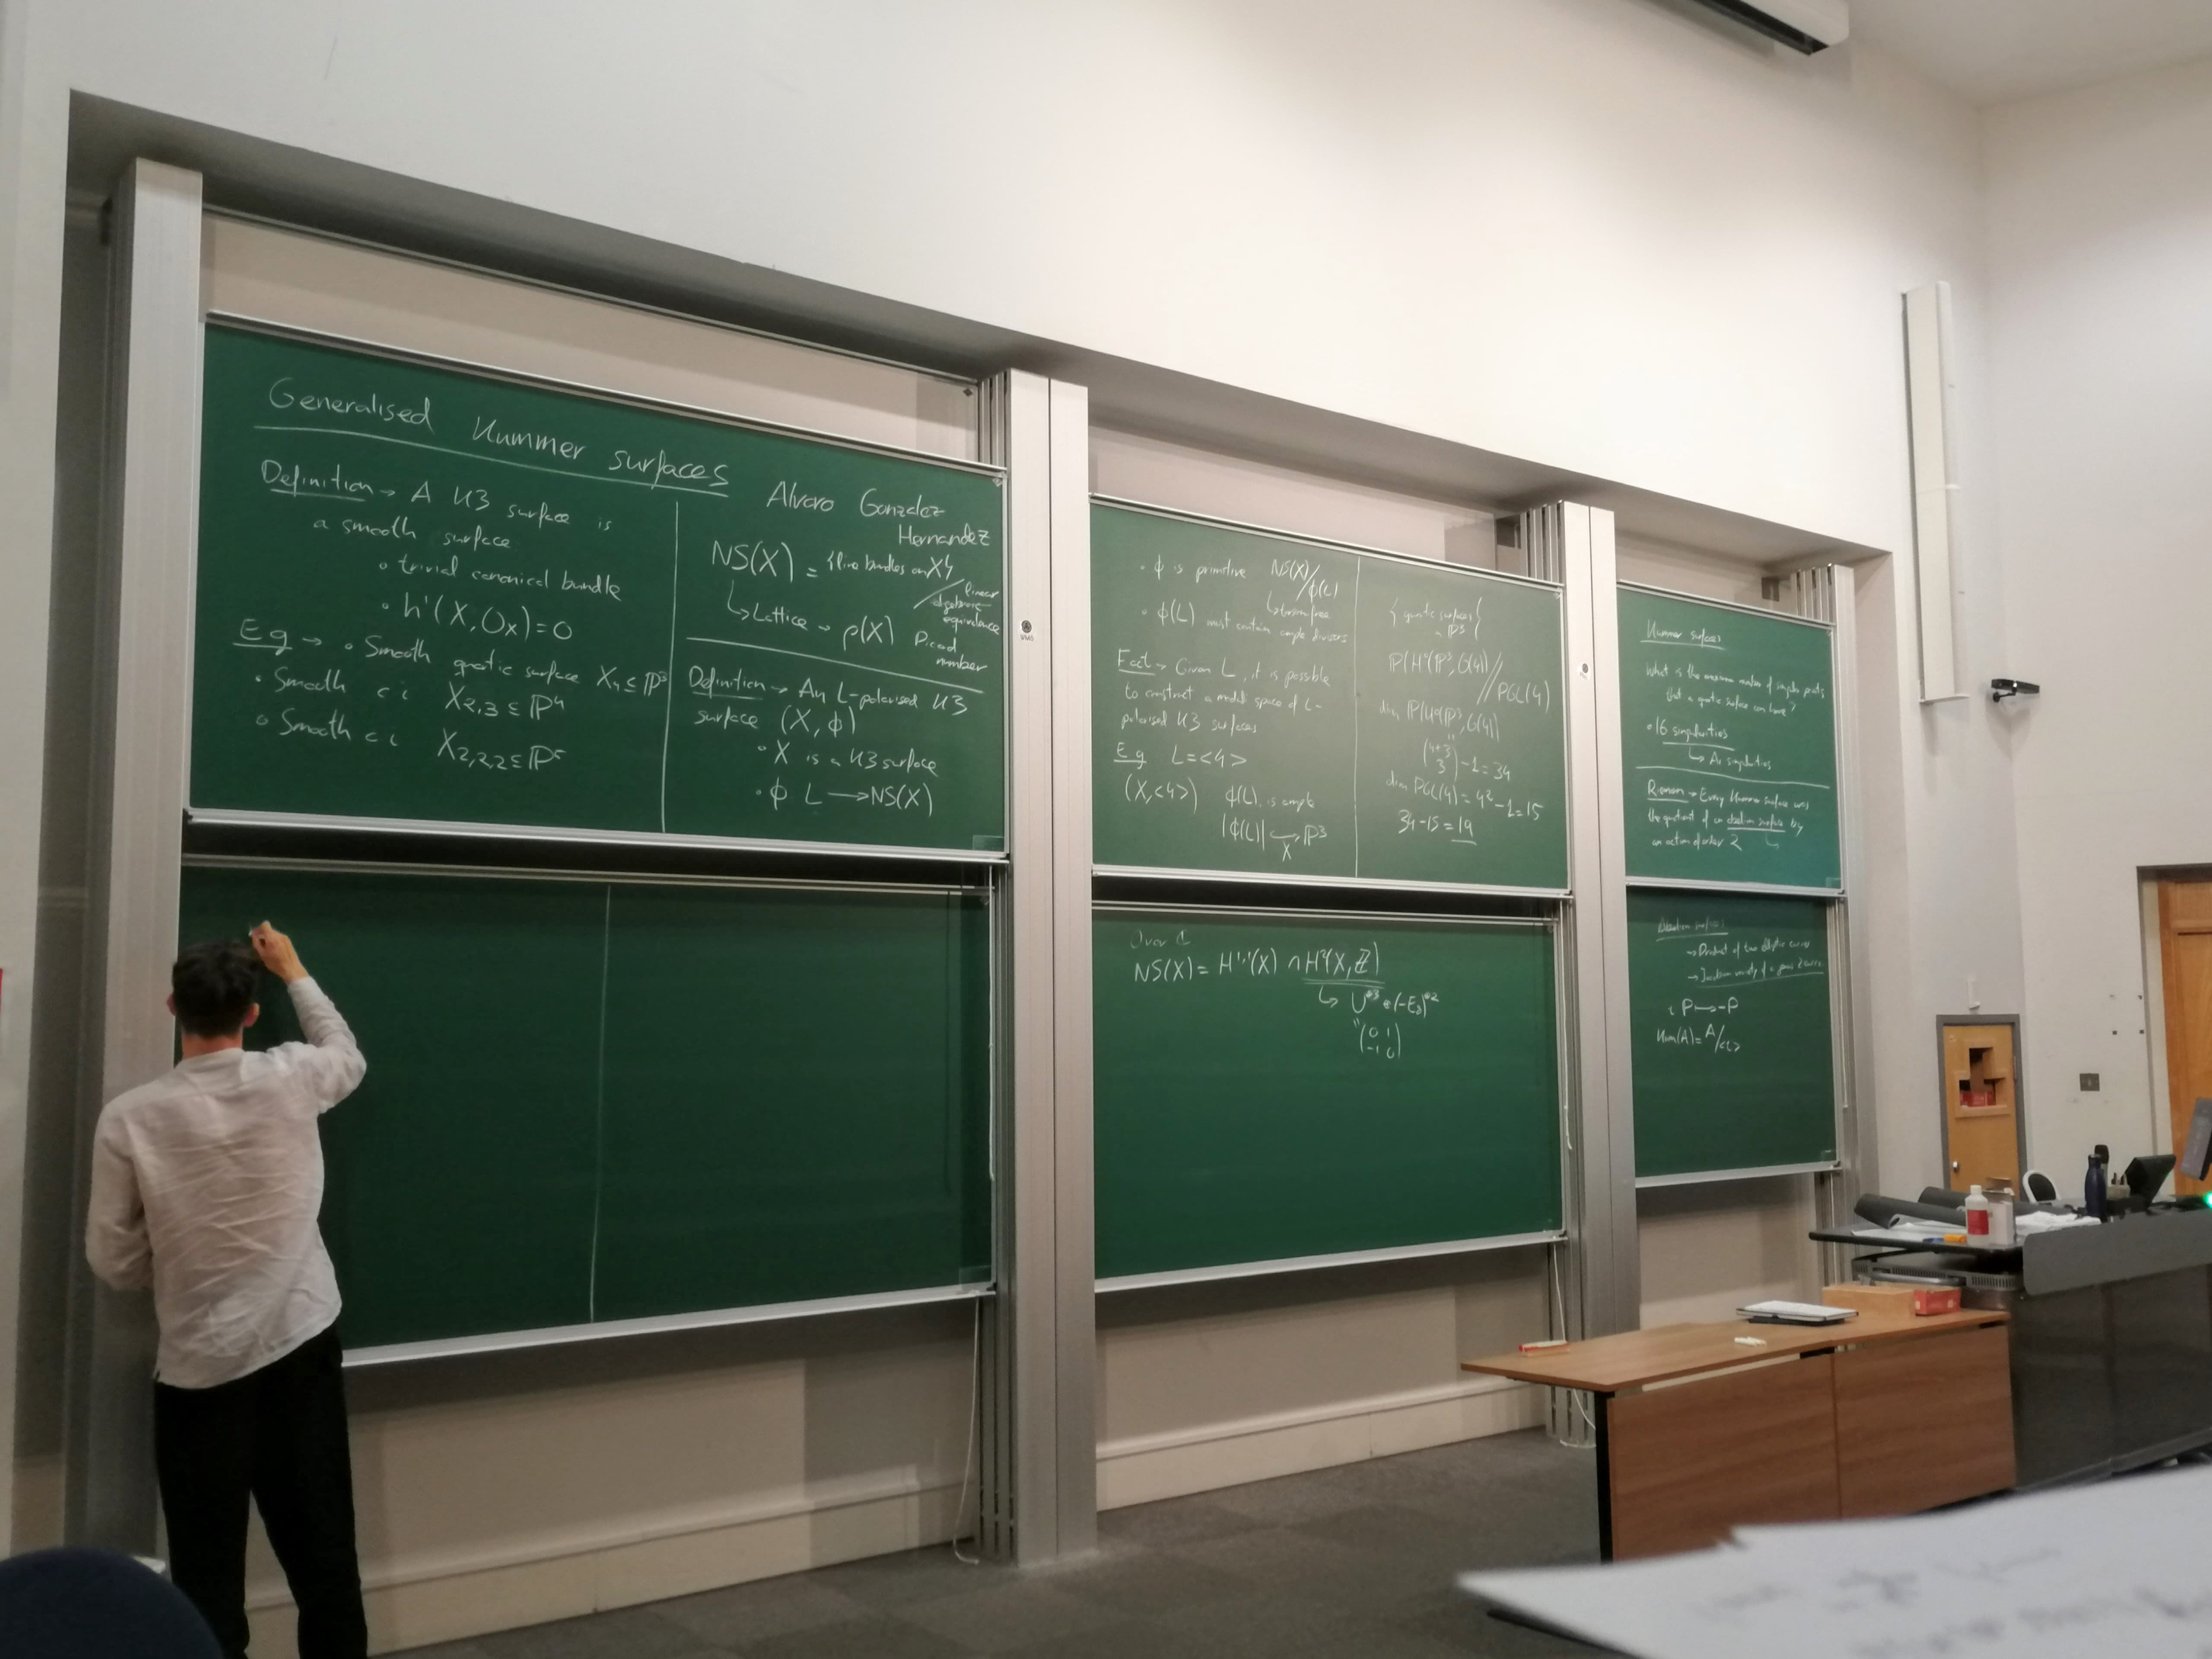 Generalised Kummer surfaces
Alvaro Gonzalez
Hernandez
Definition → A K3 surface is
a smooth surface
• trivial canonical bundle
• h¹(X, Ox) = 0
Eg → • Smooth quatic surface X₄ ⊆ ℙ³
• Smooth c i X₂,₃ ⊆ ℙ⁴
• Smooth c i X₂,₂,₂ ⊆ ℙ⁵
NS(X) = {line bundles on X}/
linear
algebraic
equivalence
↳ Lattice → ρ(X) Picard
number
Definition → An L-polarised K3
surface (X, ϕ)
• X is a K3 surface
• ϕ L → NS(X)
• ϕ is primitive NS(X)/ϕ(L)
↳ torsion free
• ϕ(L) must contain ample divisors
Fact → Given L, it is possible
to construct a moduli space of L-
polarised K3 surfaces
Eg L = <4>
(X, <4>) ϕ(L) is ample
|ϕ(L)| ↪ ℙ³
X
{quatic surfaces
in ℙ³}
ℙ(H⁰(ℙ³, O(4)))//PGL(4)
dim ℙ(H⁰(ℙ³, O(4)))
"
(4+3
3) - 1 = 34
dim PGL(4) = 4² - 1 = 15
34 - 15 = 19
Kummer surfaces
What is the maximum number of singular points
that a quatic surface can have?
• 16 singularities
↳ A₁ singularities
→ Every Kummer surface was
the quotient of an abelian surface by
an action of order 2
Over ℂ
NS(X) = H¹,¹(X) ∩ H²(X, ℤ)
↳ U⊕³ ⊕ (-E₈)⊕²
"
(0 1
-1 0)
Abelian surfaces
→ Product of two elliptic curves
→ Jacobian variety of a genus 2 curve
ι P ↦ -P
Kum(A) = A/<ι>